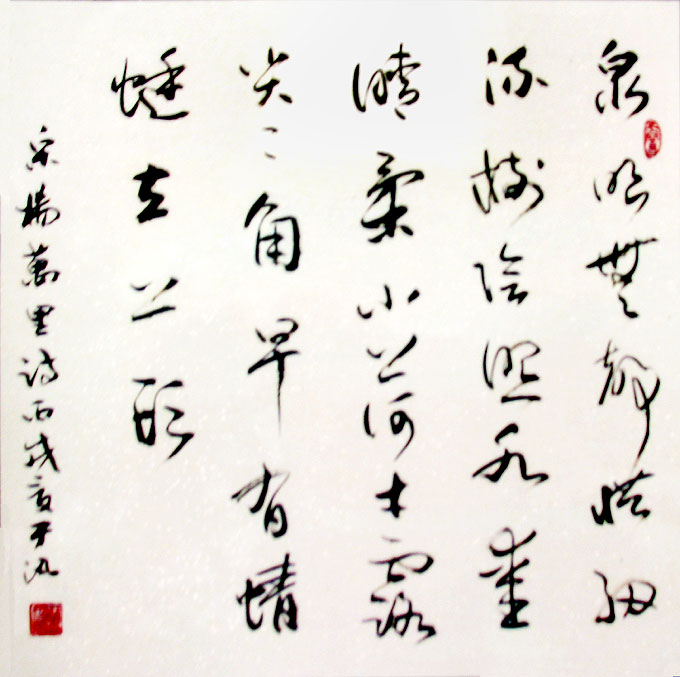 泉眼無聲惜細
流樹陰照水愛
晴柔小荷才露
尖〻角早有蜻
蜓立上頭
宋楊萬里詩丙戌夏于